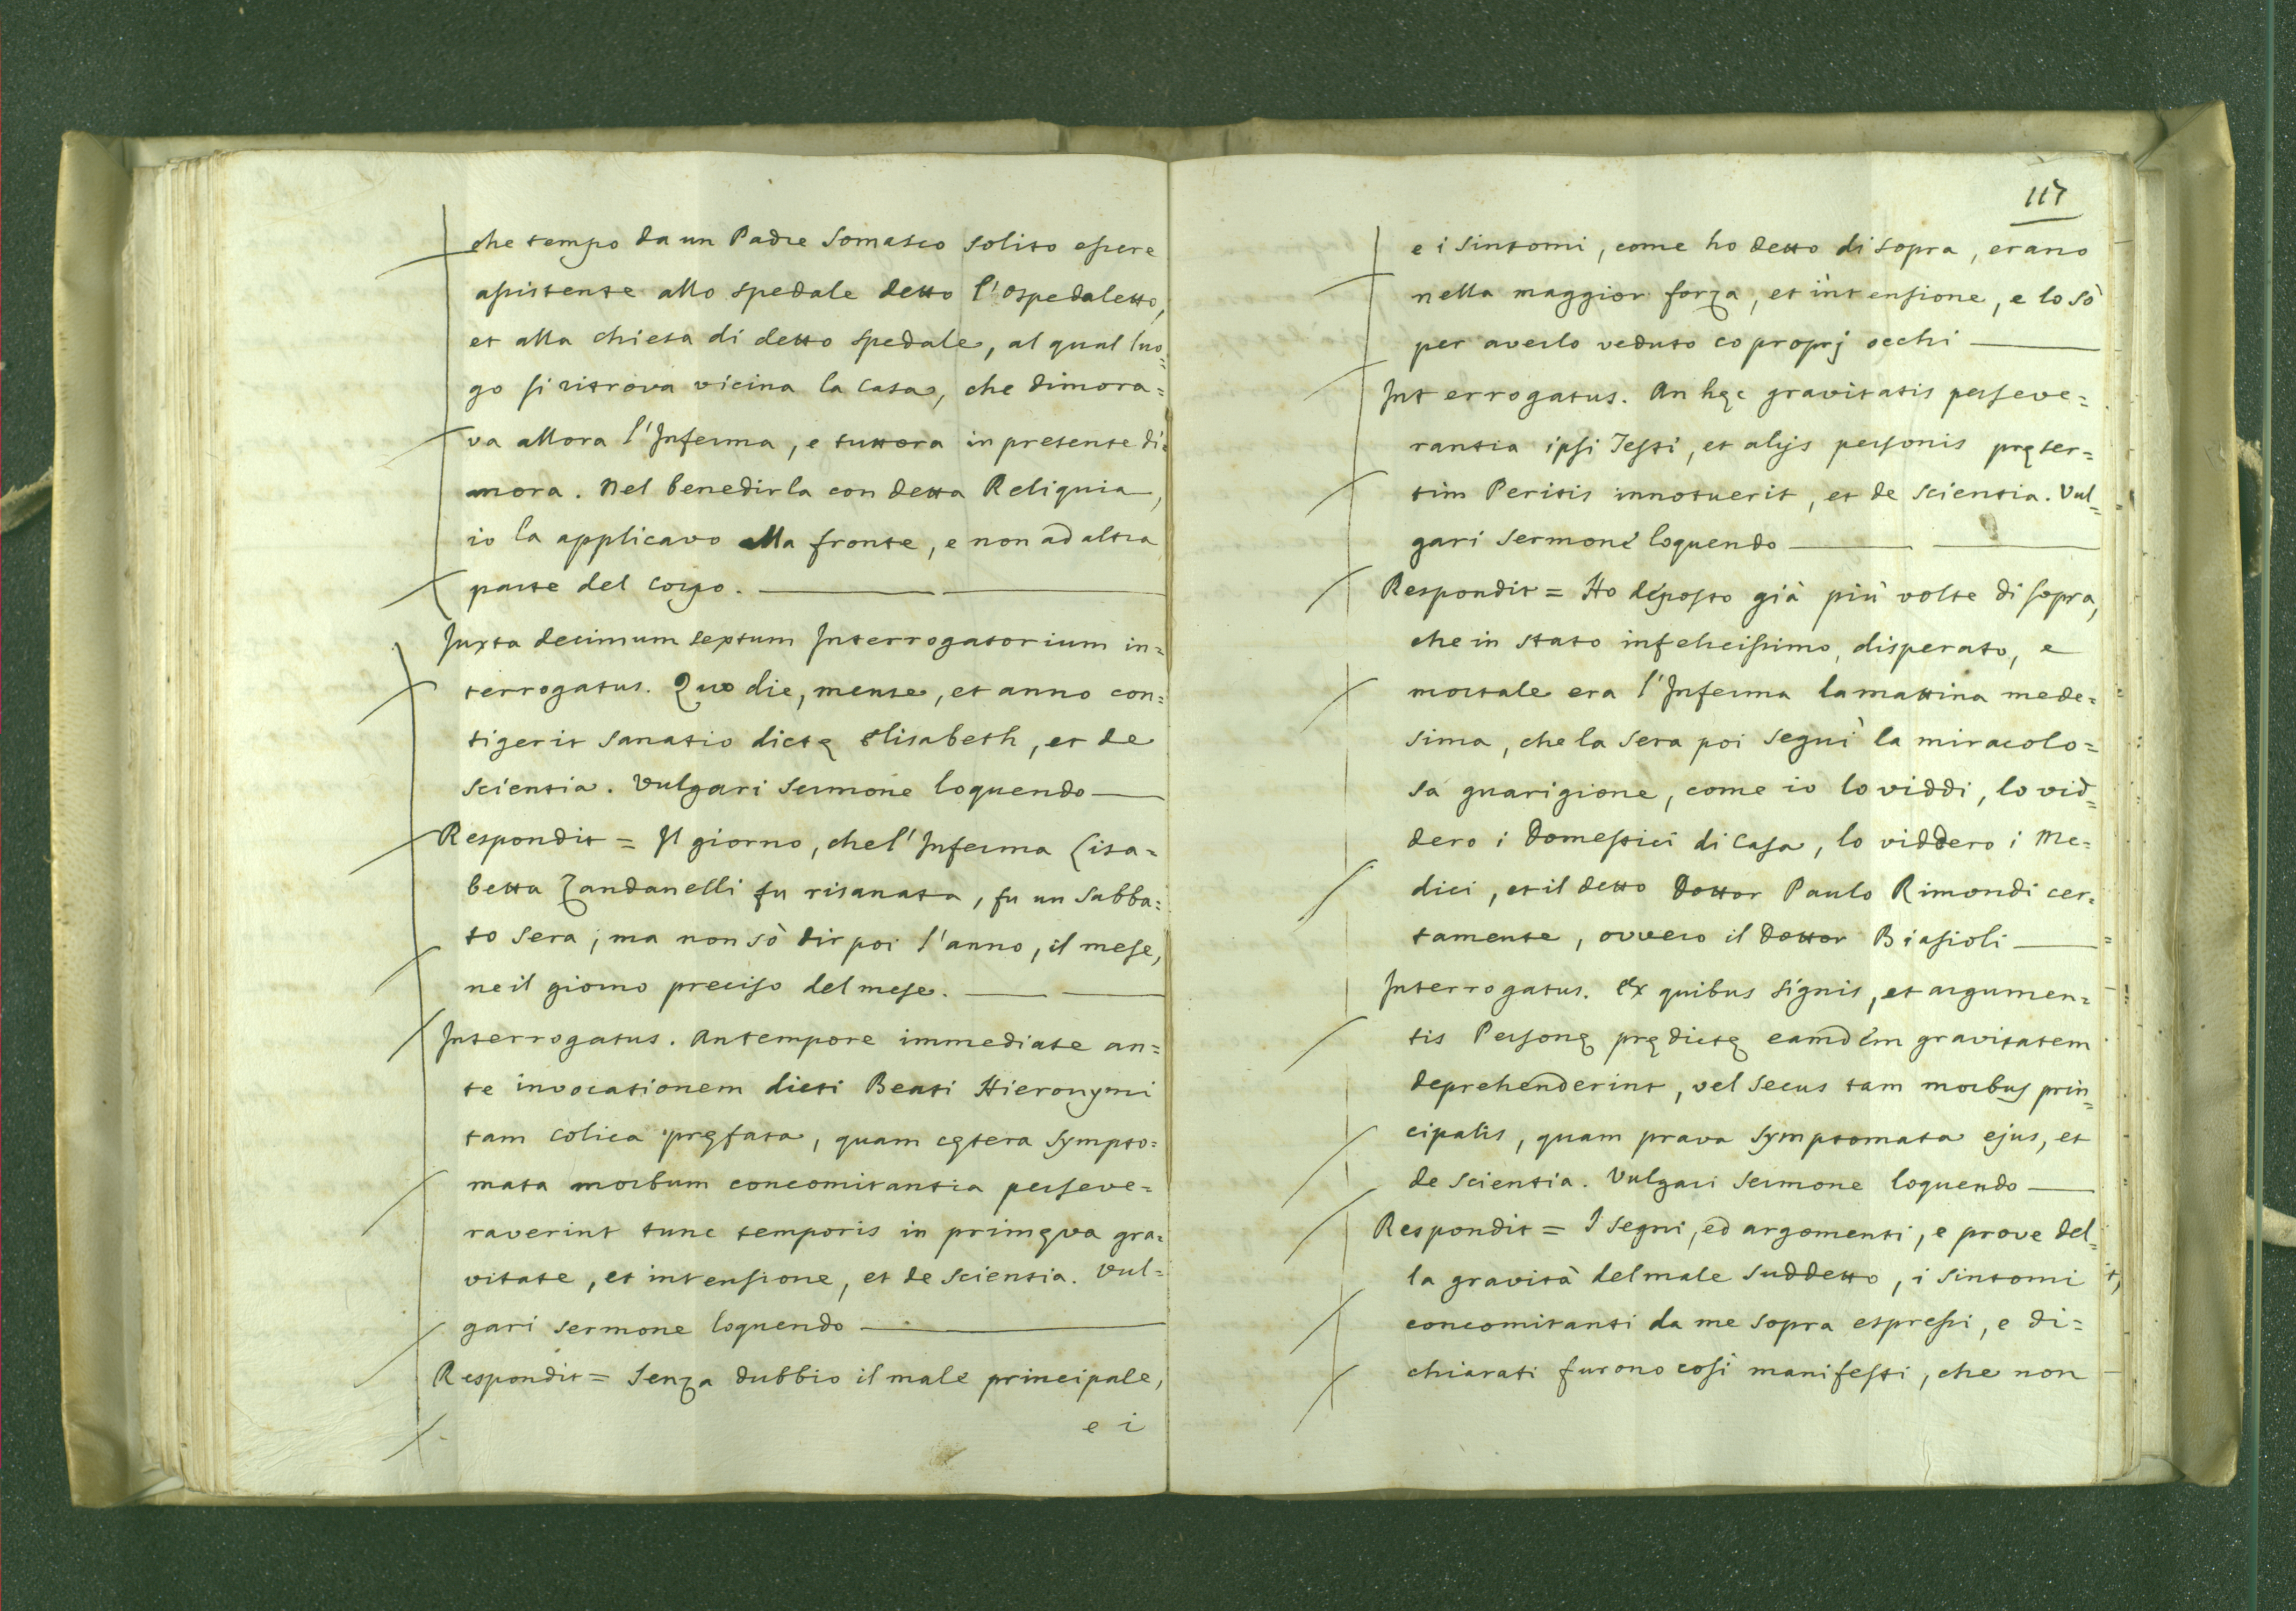 che tempo da un Padre Somasco solito essere
assistente allo spedale detto l'Ospedaletto,
et alla chiesa di detto spedale, al qual luo=
go si ritrova vicina la casa, che dimora=
va allora l'Inferma, e tuttora in presente di=
mora. Nel benedirla con detta Reliquia,
io la applicavo alla fronte, e non ad altra
parte del corpo.
Juxta decimum septum Interrogatorium in=
terrogatus. Quo die, mense, et anno con=
tigerit sanatio dictę Elisabeth, et de
scientia. Vulgari sermone loquendo
Respondit = Il giorno, che l'Inferma Lisa=
betta Zandanelli fu risanata, fu un sabba=
to sera; ma non sò dir poi l'anno, il mese,
ne il giorno preciso del mese.
Interrogatus. An tempore immediate an=
te invocationem dicti Beati Hieronymi
tam colica pręfata, quam cętera sympto=
mata morbum concomitantia perseve=
raverint tunc temporis in primęva gra=
vitate, et intensione, et de scientia. Vul=
gari sermone loquendo
Respondit = Senza dubbio il male principale,
e i
117
e i sintomi, come ho detto di sopra, erano
nella maggior forza, et intensione, e lo sò
per averlo veduto co proprj occhi
Interrogatus. An hęc gravitatis perseve=
rantia ipsi Testi, et alijs personis pręser=
tim Peritis innotuerit, et de scientia. Vul=
gari sermone loquendo
Respondit = Ho deposto già più volte di sopra,
che in stato infelicissimo, disperato, e
mortale era l'Inferma la mattina mede=
sima, che la sera poi seguì la miracolo=
sa guarigione, come io lo viddi, lo vid=
dero i Domestici di Casa, lo viddero i Me=
dici, et il detto Dottor Paulo Rimondi cer=
tamente, ovvero il Dottor Biasioli
Interrogatus. Ex quibus signis, et argumen=
tis Personę prędictę eamdem gravitatem
deprehenderint, vel secus tam morbus prin=
cipalis, quam prava symptomata ejus, et
de scientia. Vulgari sermone loquendo
Respondit = I segni, ed argomenti, e prove del=
la gravità del male suddetto, i sintomi
concomitanti da me sopra espressi, e di=
chiarati furono così manifesti, che non